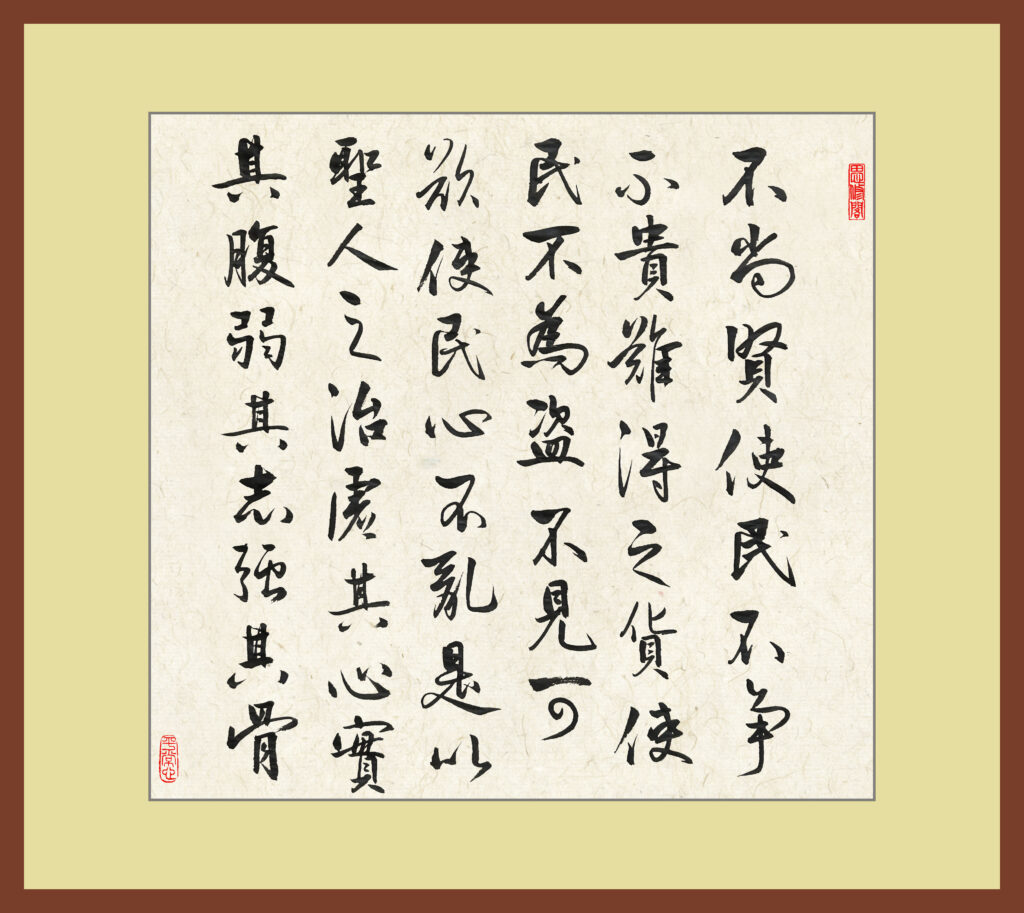 不尚賢使民不争
不貴難得之貨使
民不為盗不見可
欲使民心不亂是以
聖人之治虛其心實
其腹弱其志強其骨